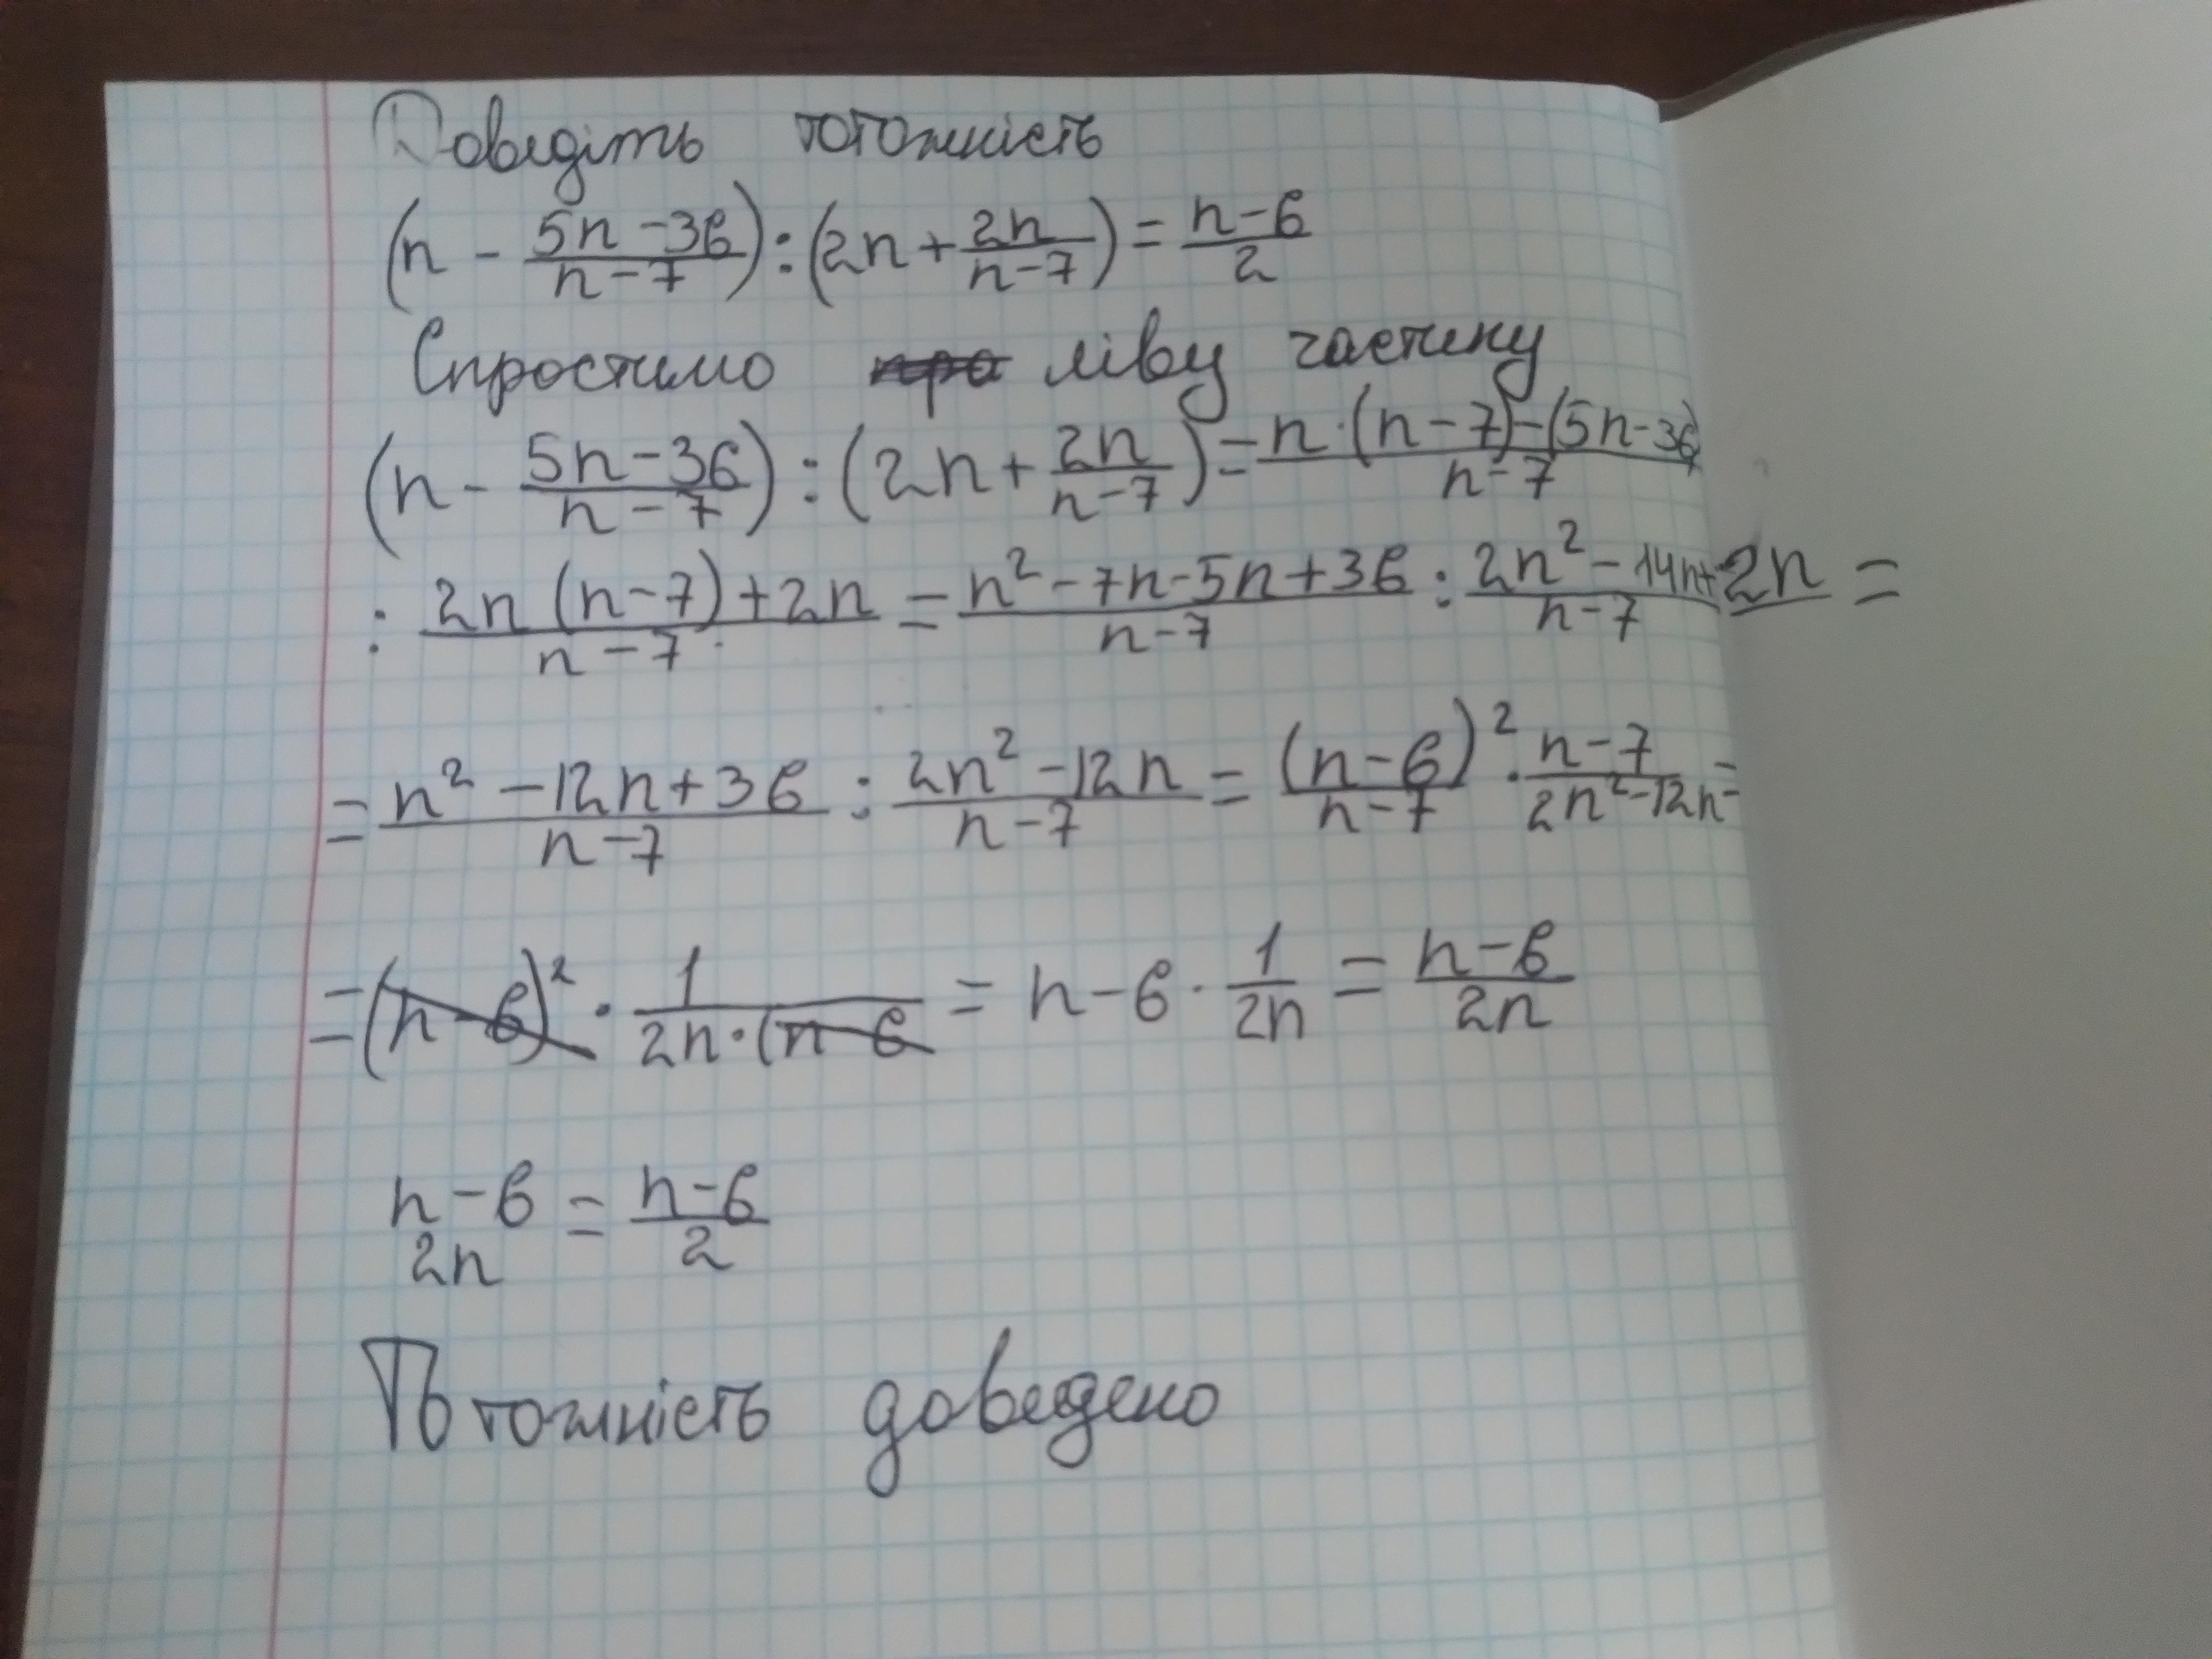 Доведіть тотожність
(n - (5n-36)/(n-7)) : (2n + 2n/(n-7)) = (n-6)/2
Спростимо ліву частину
(n - (5n-36)/(n-7)) : (2n + 2n/(n-7)) = (n·(n-7)-(5n-36))/(n-7)
: (2n(n-7)+2n)/(n-7) = (n²-7n-5n+36)/(n-7) : (2n²-14n+2n)/(n-7) =
= (n²-12n+36)/(n-7) : (2n²-12n)/(n-7) = (n-6)²/(n-7) · (n-7)/(2n²-12n) =
= (n-6)² · 1/(2n·(n-6) = n-6 · 1/2n = (n-6)/2n
(n-6)/2n = (n-6)/2
Тотожність доведено